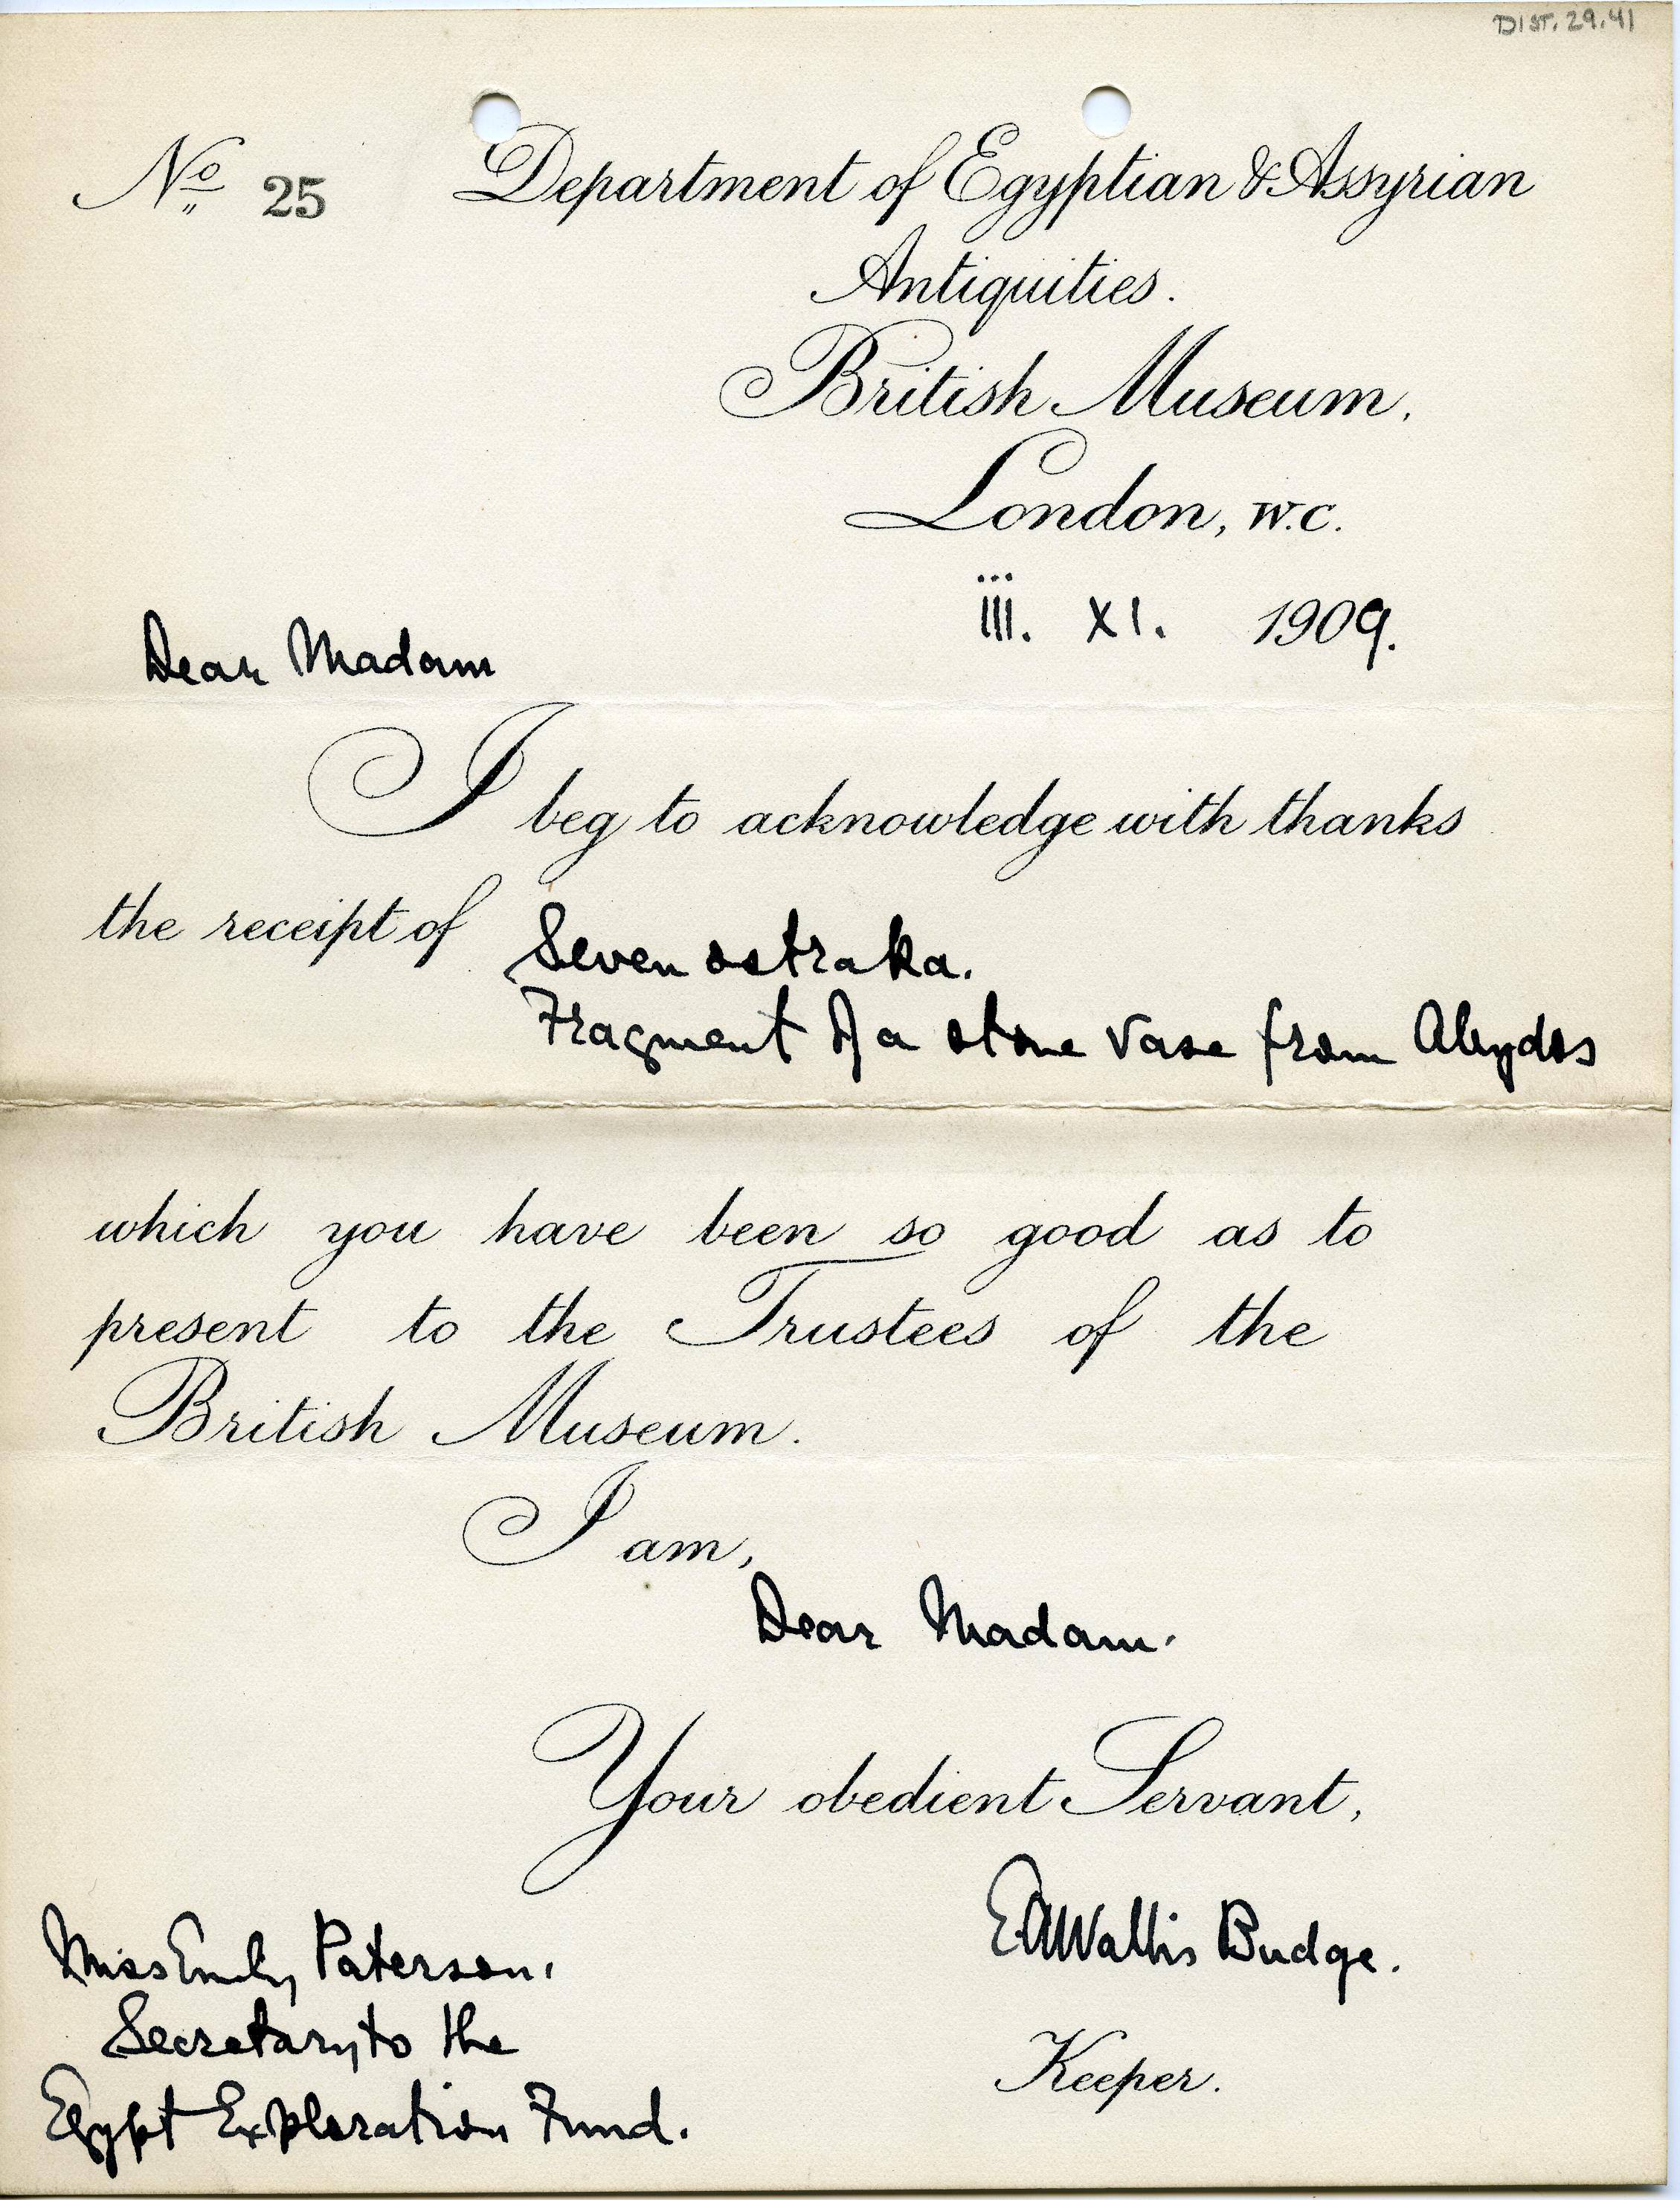 DIST. 29.41
No 25 Department of Egyptian & Assyrian
Antiquities.
British Museum,
London, W.C.
iii. XI. 1909.
Dear Madam
I beg to acknowledge with thanks
the receipt of Seven ostraka.
Fragment of a stone vase from Abydos
which you have been so good as to
present to the Trustees of the
British Museum.
I am,
Dear Madam.
Your obedient Servant,
EAWallis Budge.
Keeper.
Miss Emily Paterson.
Secretary to the
Egypt Exploration Fund.